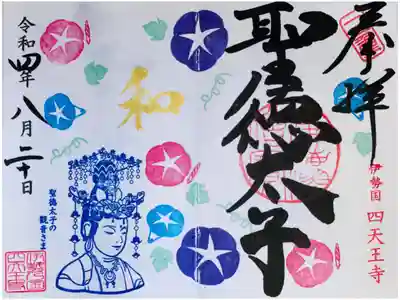 奉拝
伊勢国 四天王寺
聖徳太子
和
聖徳太子の
観音さま
令和四年 八月二十日